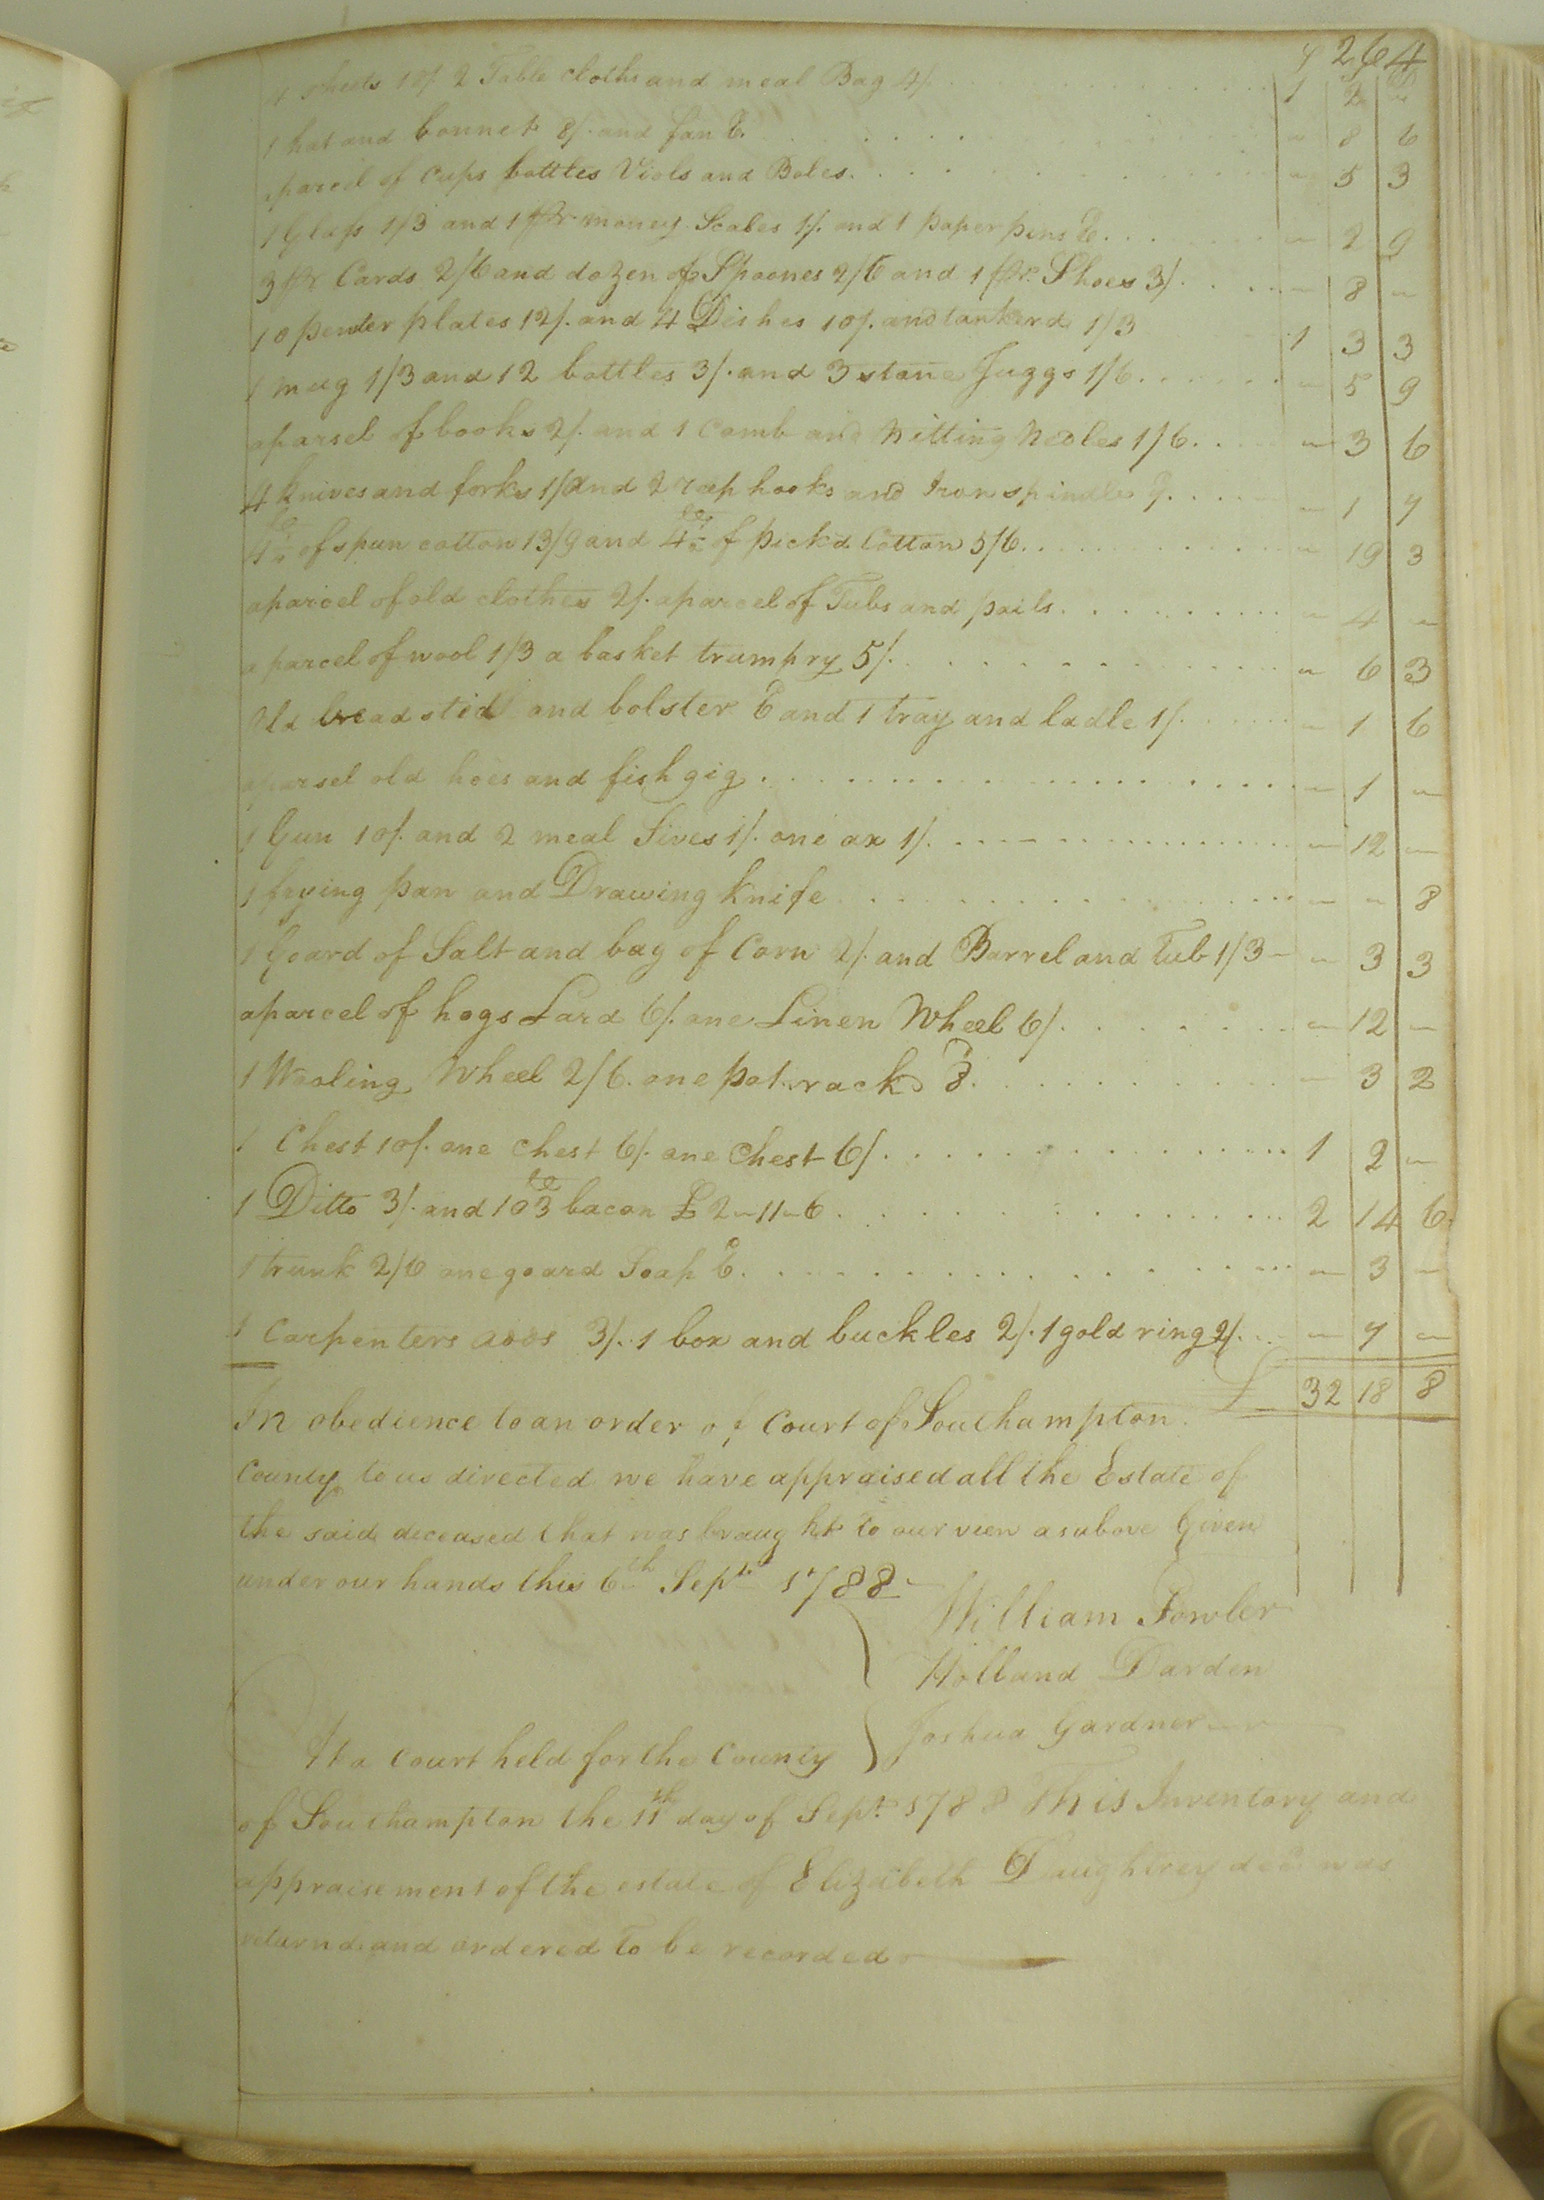 264
4 sheets 10/. 2 Table cloths and meal Bag 4/. 1 2 "
1 hat and bonnet 8/. and fan 6. " 8 6
a parcel of Cups bottles Viols and Boles. " 5 3
1 Glass 1/3 and 1 pr money Scales 1/. and 1 paper pins 6. " 2 9
3 pr Cards 2/6 and dozen of Spoones 2/6 and 1 pr. Shoes 3/. " 8 "
10 pewter plates 12/. and 4 Dishes 10/. and tankerd 1/3 1 3 3
1 mug 1/3 and 12 bottles 3/. and 3 stone Juggs 1/6. " 5 9
a parsel of books 2/. and 1 Comb and Nitting Nedles 1/6. " 3 6
4 knives and forks 1/. and 2 reep hooks and Iron spindle 7. " 1 7
4 lb of spun cotton 13/9 and 4 lb of pickd Cotton 5/6. " 19 3
a parcel of old clothes 2/. a parcel of Tubs and pails. " 4 "
a parcel of wool 1/3 a basket trumpry 5/. " 6 3
Old breadstid and bolster 6 and 1 tray and ladle 1/. " 1 6
a parsel old hoes and fish gig. " 1 "
1 Gun 10/. and 2 meal Sives 1/. one ax 1/. " 12 "
1 frying pan and Drawing knife " " 8
1 Goard of Salt and bag of Corn 2/. and Barrel and Tub 1/3 " 3 3
a parcel of hogs Lard 6/. one Linen Wheel 6/. " 12 "
1 Wooling Wheel 2/6. one pot rack 8. " 3 2
1 Chest 10/. one chest 6/. one Chest 6/. 1 2 "
1 Ditto 3/. and 103 lb bacon £2-11-6. 2 14 6
1 trunk 2/6 one goard Soap 6. " 3 "
1 Carpenters adds 3/. 1 box and buckles 2/. 1 gold ring 2/. " 7 "
£ 32 18 8
In obedience to an order of Court of Southampton
County to us directed we have appraised all the Estate of
the said deceased that was braught to our view as above Given
under our hands this 6th Sept. 1788
William Fowler
Holland Darden
Joshua Gardner
At a Court held for the County
of Southampton the 11th day of Sept. 1788 This Inventory and
appraisement of the estate of Elizabeth Daughtrey decd. was
returnd and ordered to be recorded